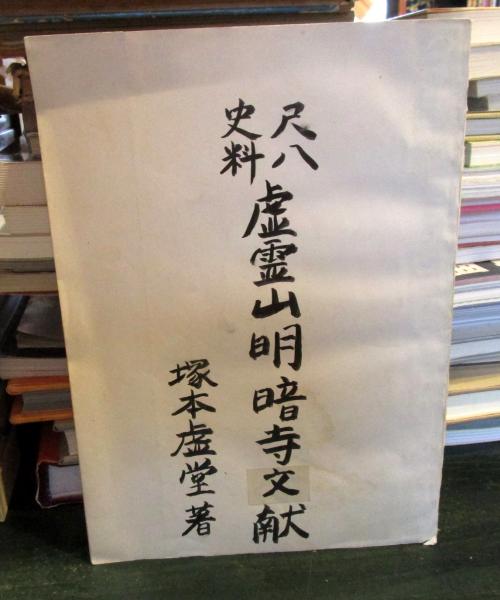 尺八
史料
虚霊山明暗寺文献
塚本虚堂著